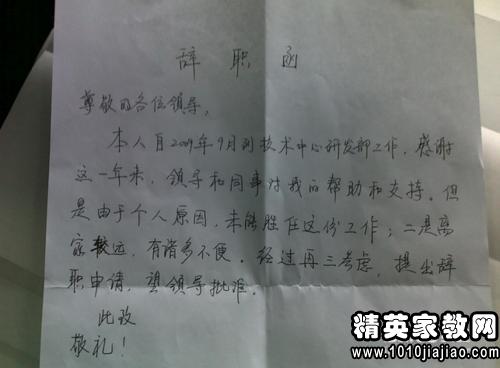 辞职函
尊敬的各位领导,
本人自2009年9月到技术中心研发部工作,感谢
这一年来,领导和同事对我的帮助和支持。但
是由于个人原因,未能胜任这份工作;二是离
家较远,有诸多不便。经过再三考虑,提出辞
职申请,望领导批准。
此致
敬礼!
精英家教网
www.1010jiajiao.com